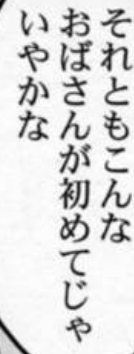 それともこんな
おばさんが初めてじゃ
いやかな